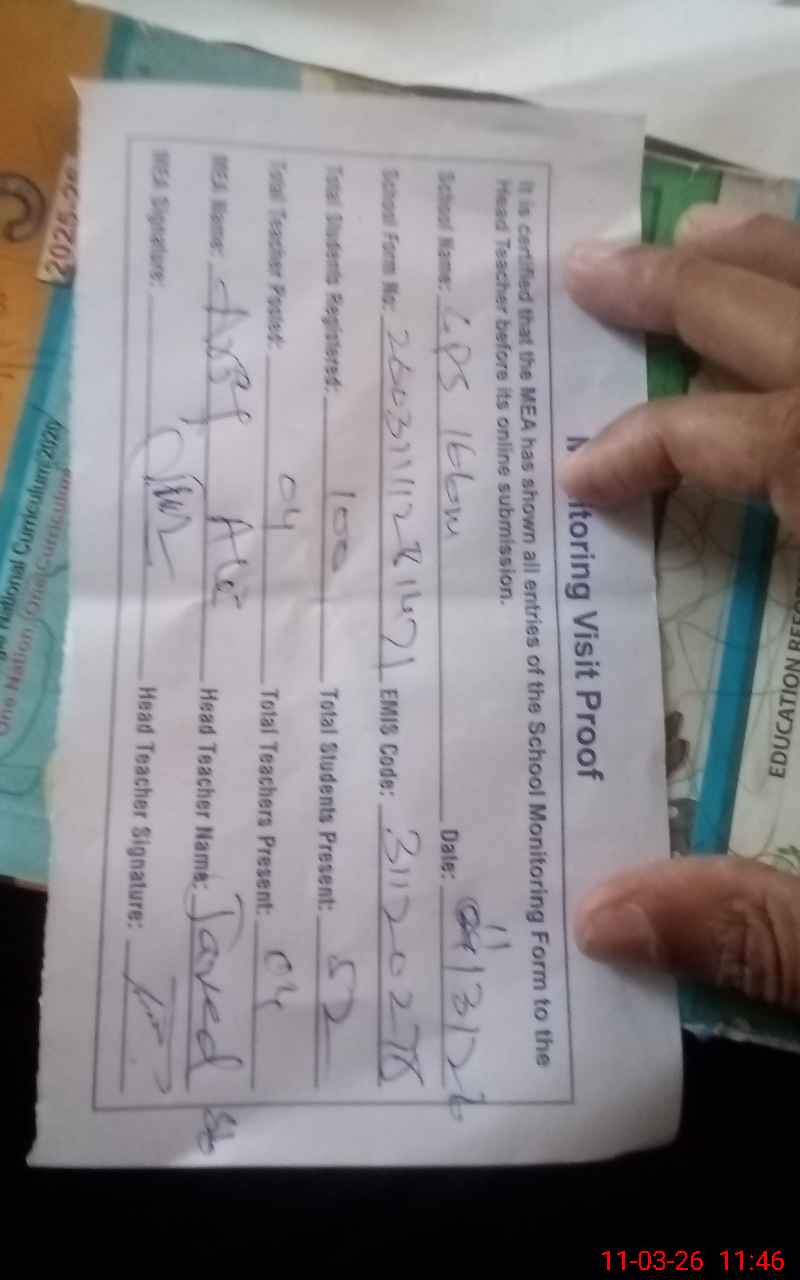 Monitoring Visit Proof
It is certified that the MEA has shown all entries of the School Monitoring Form to the
Head Teacher before its online submission.
School Name: GPS 166w Date: 11/3/26
School Form No: EMIS Code: 31120278
Total Students Registered: 100 Total Students Present: 52
Total Teacher Posted: 04 Total Teachers Present: 04
MEA Name: Head Teacher Name: Javed
MEA Signature: Head Teacher Signature:
2025-26
National Curriculum 2020
One Nation, One Curriculum
EDUCATION
11-03-26 11:46